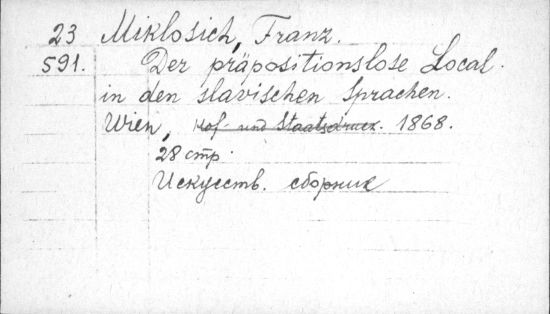 23 Miklosich, Franz.
591. Der präpositionslose Local
in den slavischen Sprachen.
Wien, Hof- und Staatsdruck. 1868.
28 стр.
Искусств. сборник